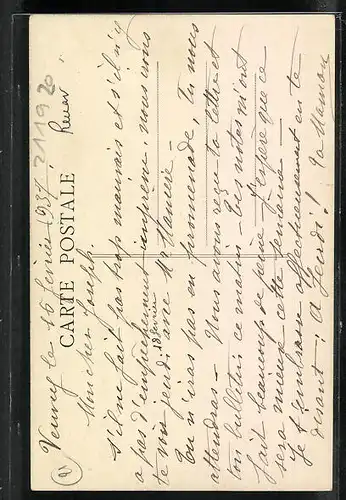 le 16 février 1937
211920
CARTE POSTALE
Mon cher Joseph.
S'il ne fait pas trop mauvais et s'il n'y
a pas d'empêchement imprévu, nous irons
te voir jeudi avec Mr
18 février
Tu n'iras pas en promenade, tu nous
attendras - Nous avons reçu ta lettre et
ton bulletin ce matin - les notes m'ont
fait beaucoup de peine - J'espère que ce
sera mieux cette semaine -
Je t'embrasse affectueusement en te
disant : à Jeudi ! Ta Maman